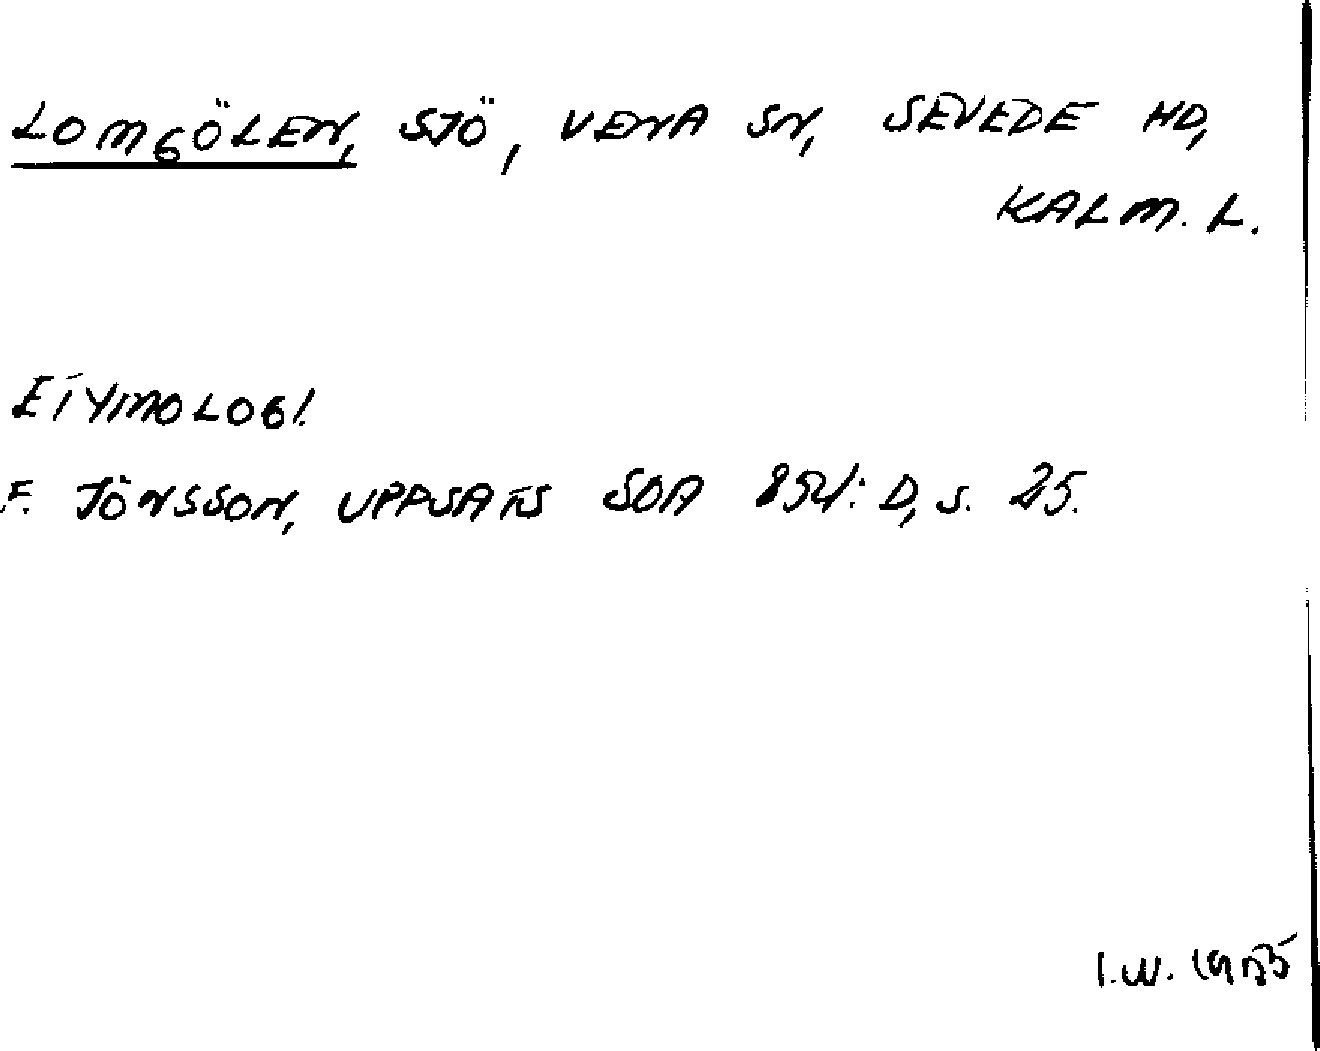 LOMGÖLEN, SJÖ, VENA SN, SEVEDE HD,
KALM. L.
ETYMOLOGI.
F. JÖNSSON, UPPSATS SOA 854: D, S. 25.
I.W. 1955